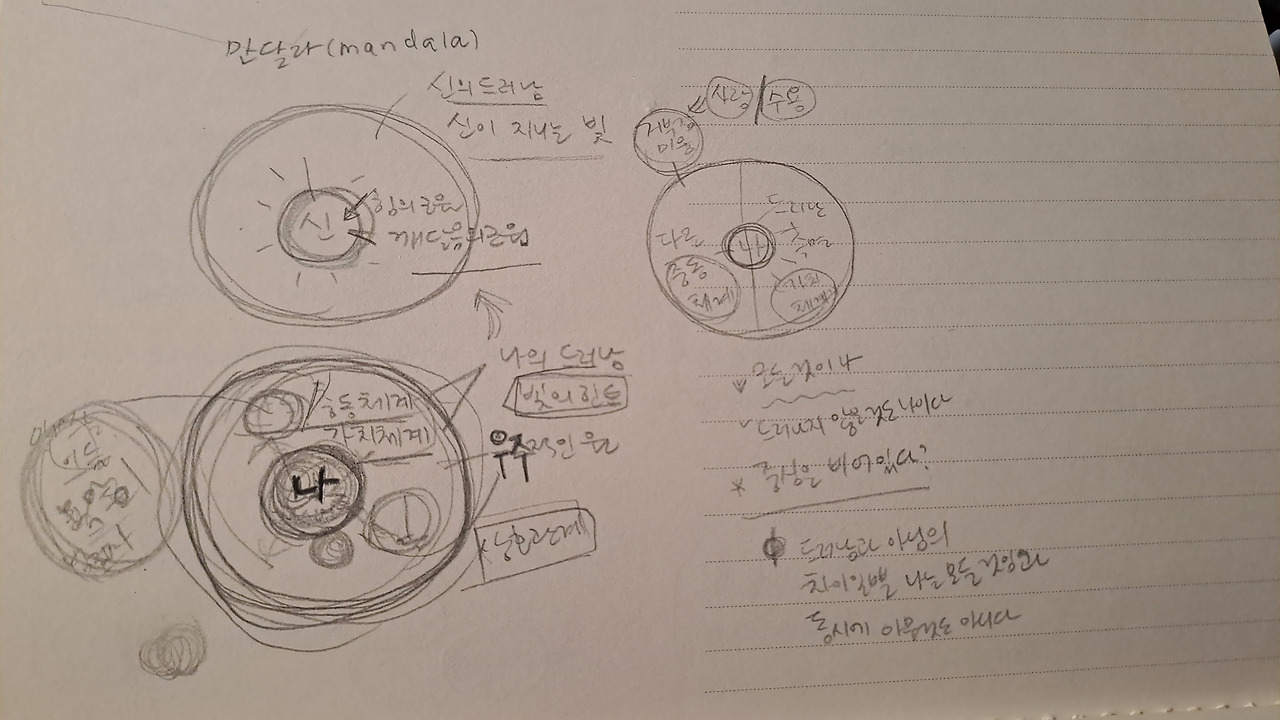 만달라(mandala)
신의 드러남
신이 지나는 빛
신
힘의 근원
깨달음의 근원
나의 드러남
빛의 힌트
행동체계
가치체계
나
우주적인 운
상호관계
어둠
사랑
수용
미움
드러난
측면
나
다른
충동
체계
가치
체계
모든것이 나
드러나지 않은것도 나이다
중심은 비어있다?
드러남과 아님의
차이일뿐 나는 모든것임과
동시에 아무것도 아니다